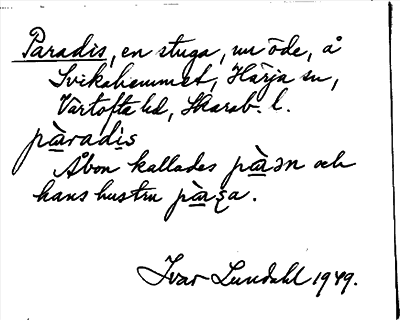 Paradis, en stuga, nu öde, å
Svikahemmet, Härja sn,
Vartofta hd, Skarab. l.
pàradis
Åbon kallades pàrən och
hans hustru pàrʒa.
Ivar Lundahl 1949.